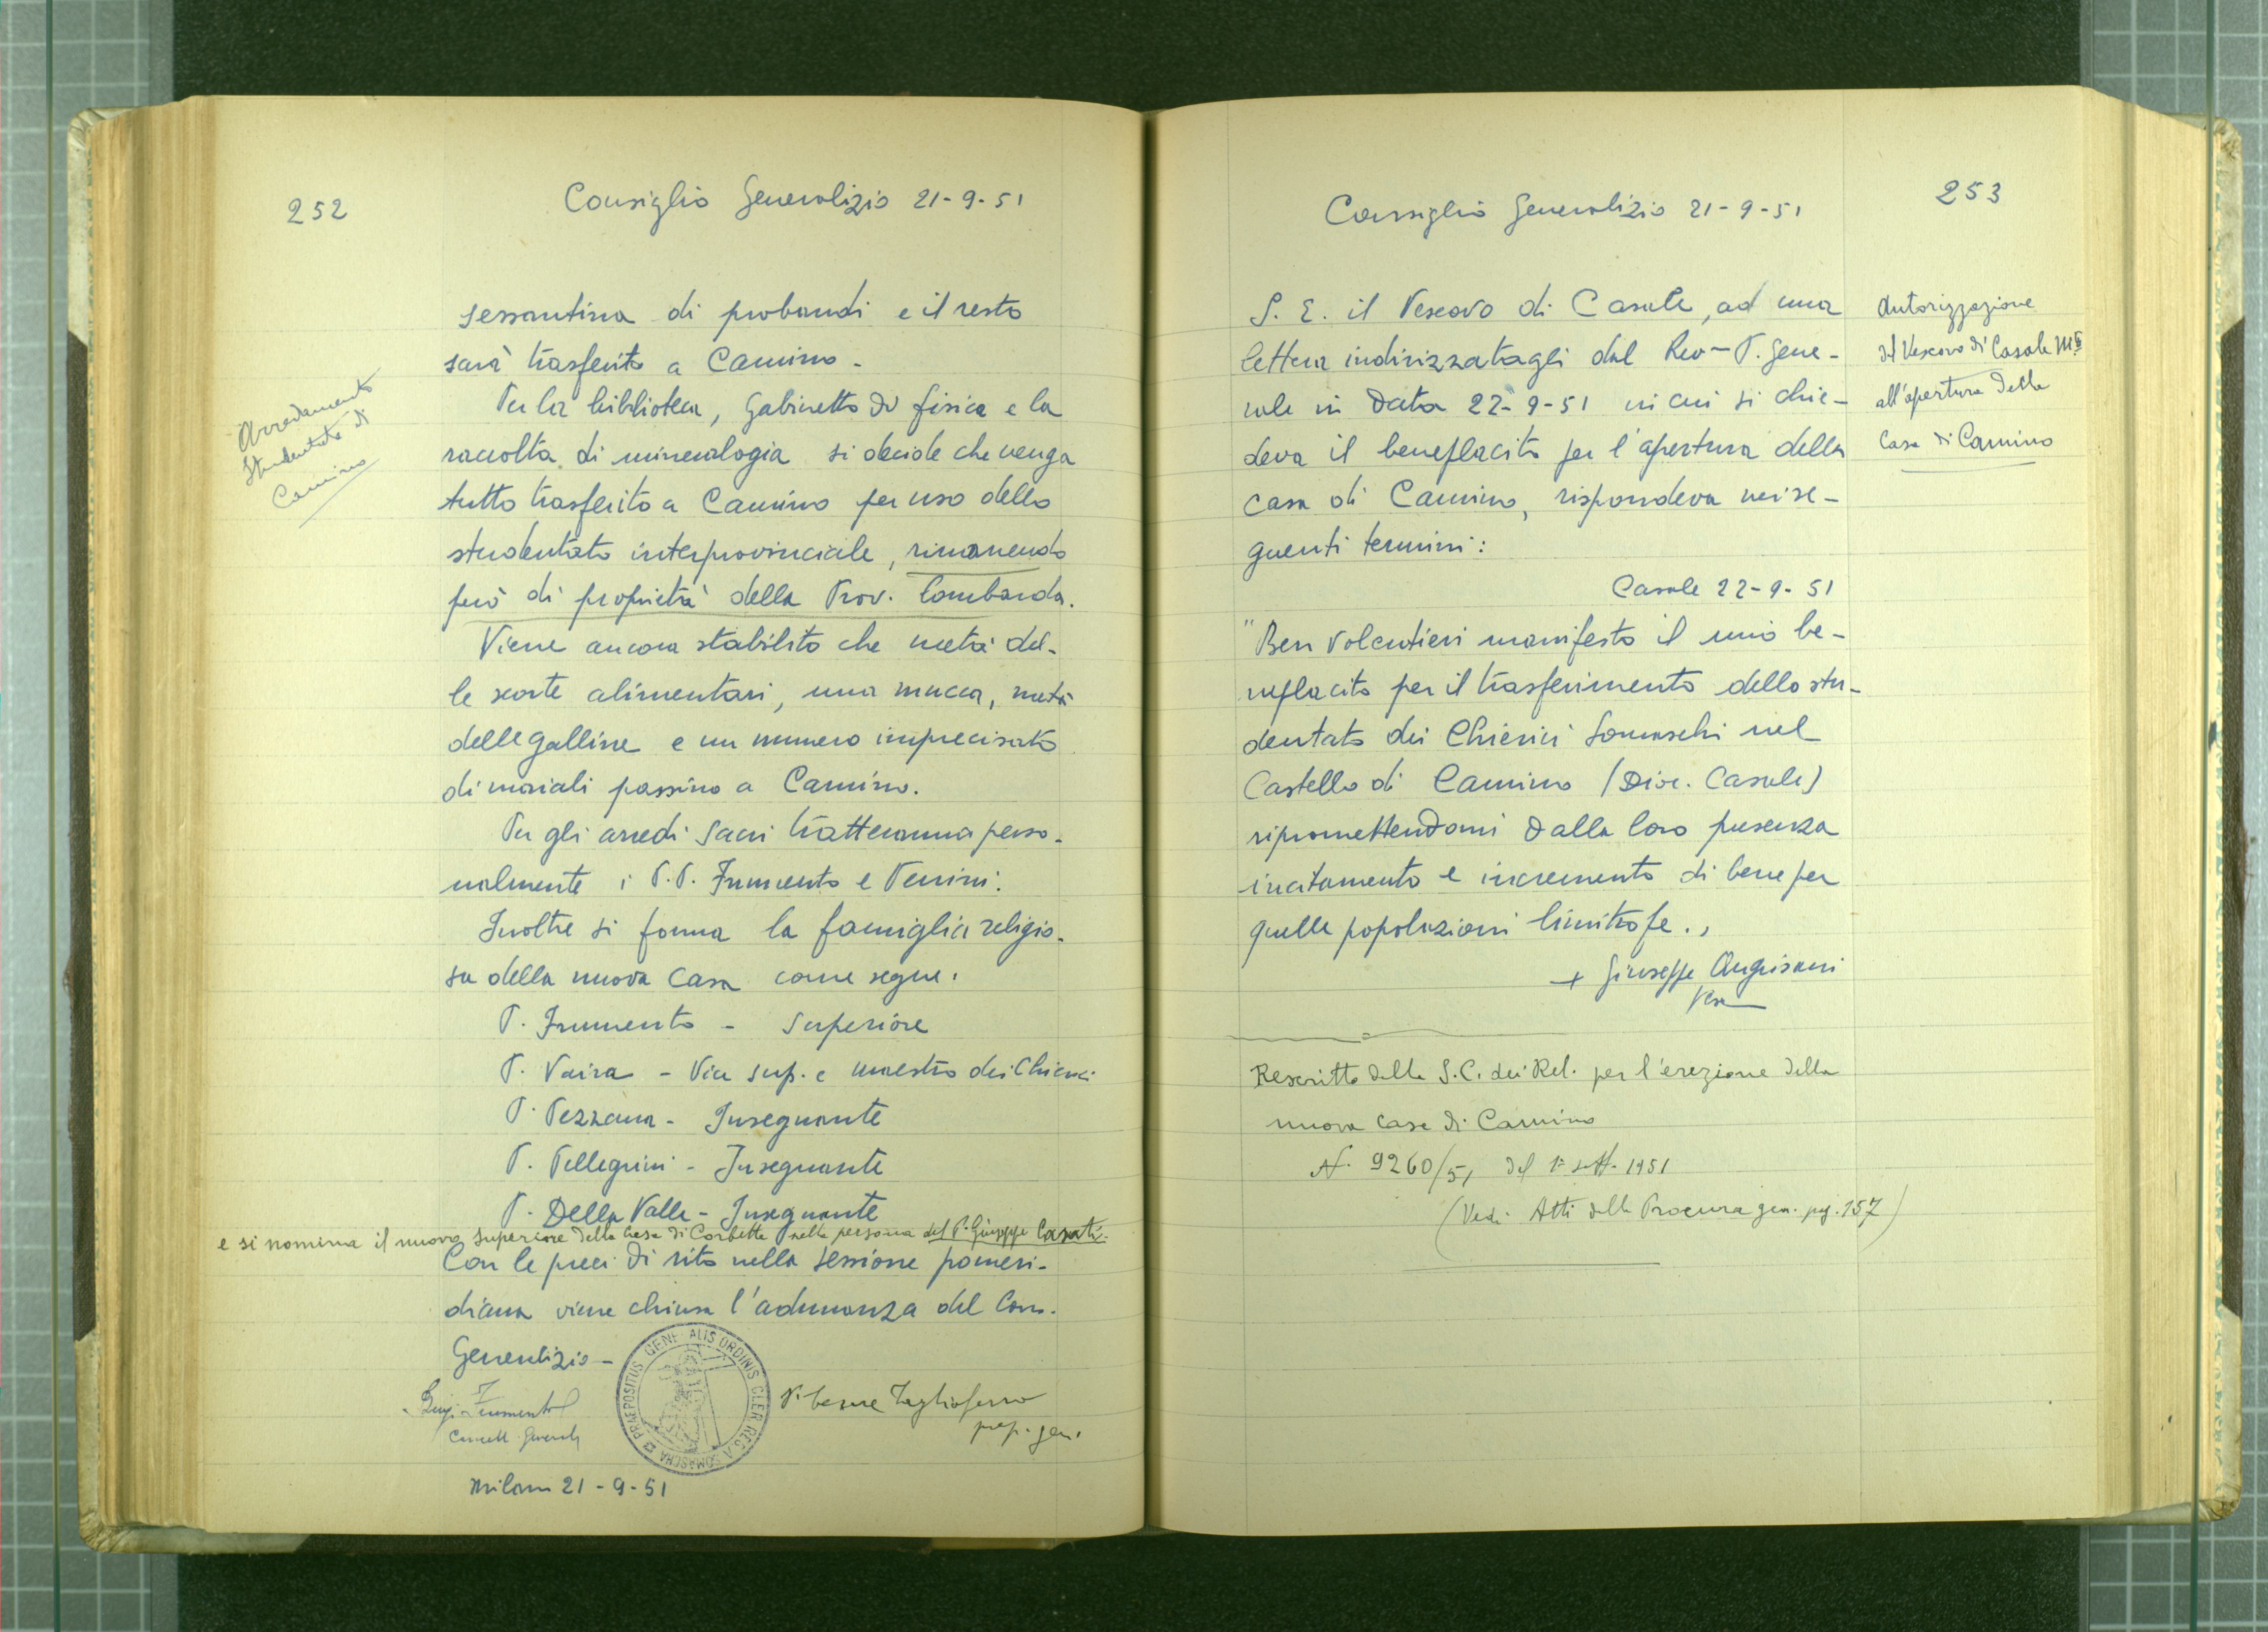 252
Consiglio Generalizio 21-9-51
Arredamento
Studentato di
Camino
sessantina di probandi e il resto
sarà trasferito a Camino -
Per la biblioteca, Gabinetto di fisica e la
raccolta di mineralogia si decide che venga
tutto trasferito a Camino per uso dello
studentato interprovinciale, rimanendo
però di proprietà della Prov. Lombarda.
Viene ancora stabilito che metà del-
le scorte alimentari, una mucca, metà
delle galline e un numero imprecisato
di maiali passino a Camino.
Per gli arredi sacri tratteranno perso-
nalmente i P.P. Frumento e Venini.
Inoltre si forma la famiglia religio-
sa della nuova Casa come segue:
P. Frumento - Superiore
P. Vaira - Vice sup. e maestro dei Chierici
P. Pezzana - Insegnante
P. Pellegrini - Insegnante
P. Della Valle - Insegnante
e si nomina il nuovo Superiore della Casa di Corbetta nella persona del P. Giuseppe Casati.
Con le preci di rito nella sessione pomeri-
diana viene chiusa l'adunanza del Cons.
Generalizio -
PRAEPOSITUS GENERALIS ORDINIS CLER. REG. A SOMASCHA
Luigi Frumento
Cancell. General.
P. Cesare Tagliaferro
prep. gen.
Milano 21-9-51
253
Consiglio Generalizio 21-9-51
Autorizzazione
del Vescovo di Casale M.to
all'apertura della
Casa di Camino
S. E. il Vescovo di Casale, ad una
lettera indirizzatagli dal Rev.mo P. Gene-
rale in data 22-9-51 in cui si chie-
deva il beneplacito per l'apertura della
casa di Camino, rispondeva nei se-
guenti termini:
Casale 22-9-51
"Ben volentieri manifesto il mio be-
neplacito per il trasferimento dello stu-
dentato dei Chierici Somaschi nel
Castello di Camino (Dioc. Casale)
ripromettendomi dalla loro presenza
incitamento e incremento di bene per
quelle popolazioni limitrofe.,,
+ Giuseppe Angrisani
Vesc
Rescritto della S.C. dei Rel. per l'erezione della
nuova casa di Camino
N. 9260/51 del 1° sett. 1951
(Vedi Atti della Procura gen. pag. 157)